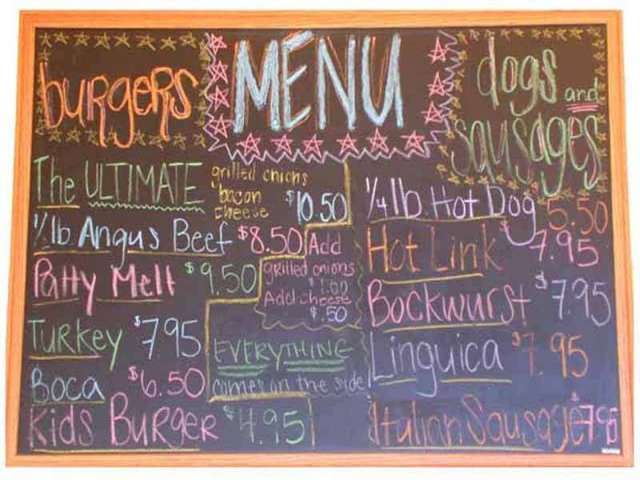 MENU
burgers
The ULTIMATE grilled onions bacon cheese $10.50
½lb Angus Beef $8.50
Patty Melt $9.50
Add grilled onions $1.00
Add cheese $.50
Turkey $795
Boca $6.50
Kids Burger $4.95
EVERYTHING
comes on the side
dogs and
sausages
¼lb Hot Dog 5.50
Hot Link 7.95
Bockwurst $7.95
Linguica $7.95
Italian Sausage